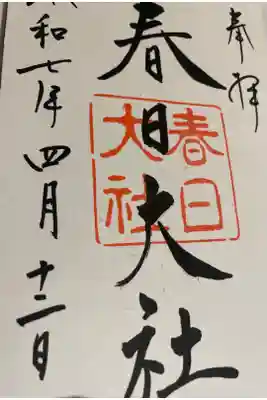 奉拝
春日大社
春日
大社
令和七年四月十二日